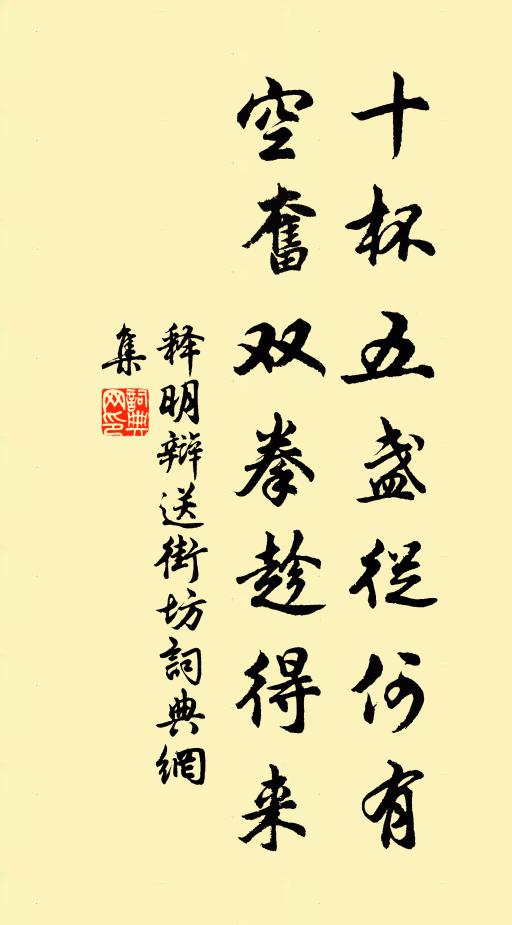 十杯五盏從何有
空奮双拳趁得来
释明辩送街坊詞典網
集
詞典
网印